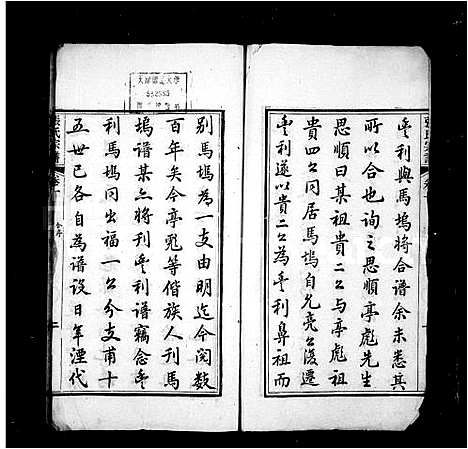 豐利與馬塢將合譜余未悉其
所以合也詢之思順亭彪先生
思順曰某祖貴二公与亭彪祖
貴四公同居馬塢自允亮公後遷
豐利遂以貴二公為豐利鼻祖而
別馬塢為一支由明迄今閱數
百年矣今亭彪等偕族人刊馬
塢譜某亦將刊豐利譜竊念豐
利馬塢同出福一公分支甫十
五世已各自為譜設日年湮代
張氏宗譜
卷十
合序